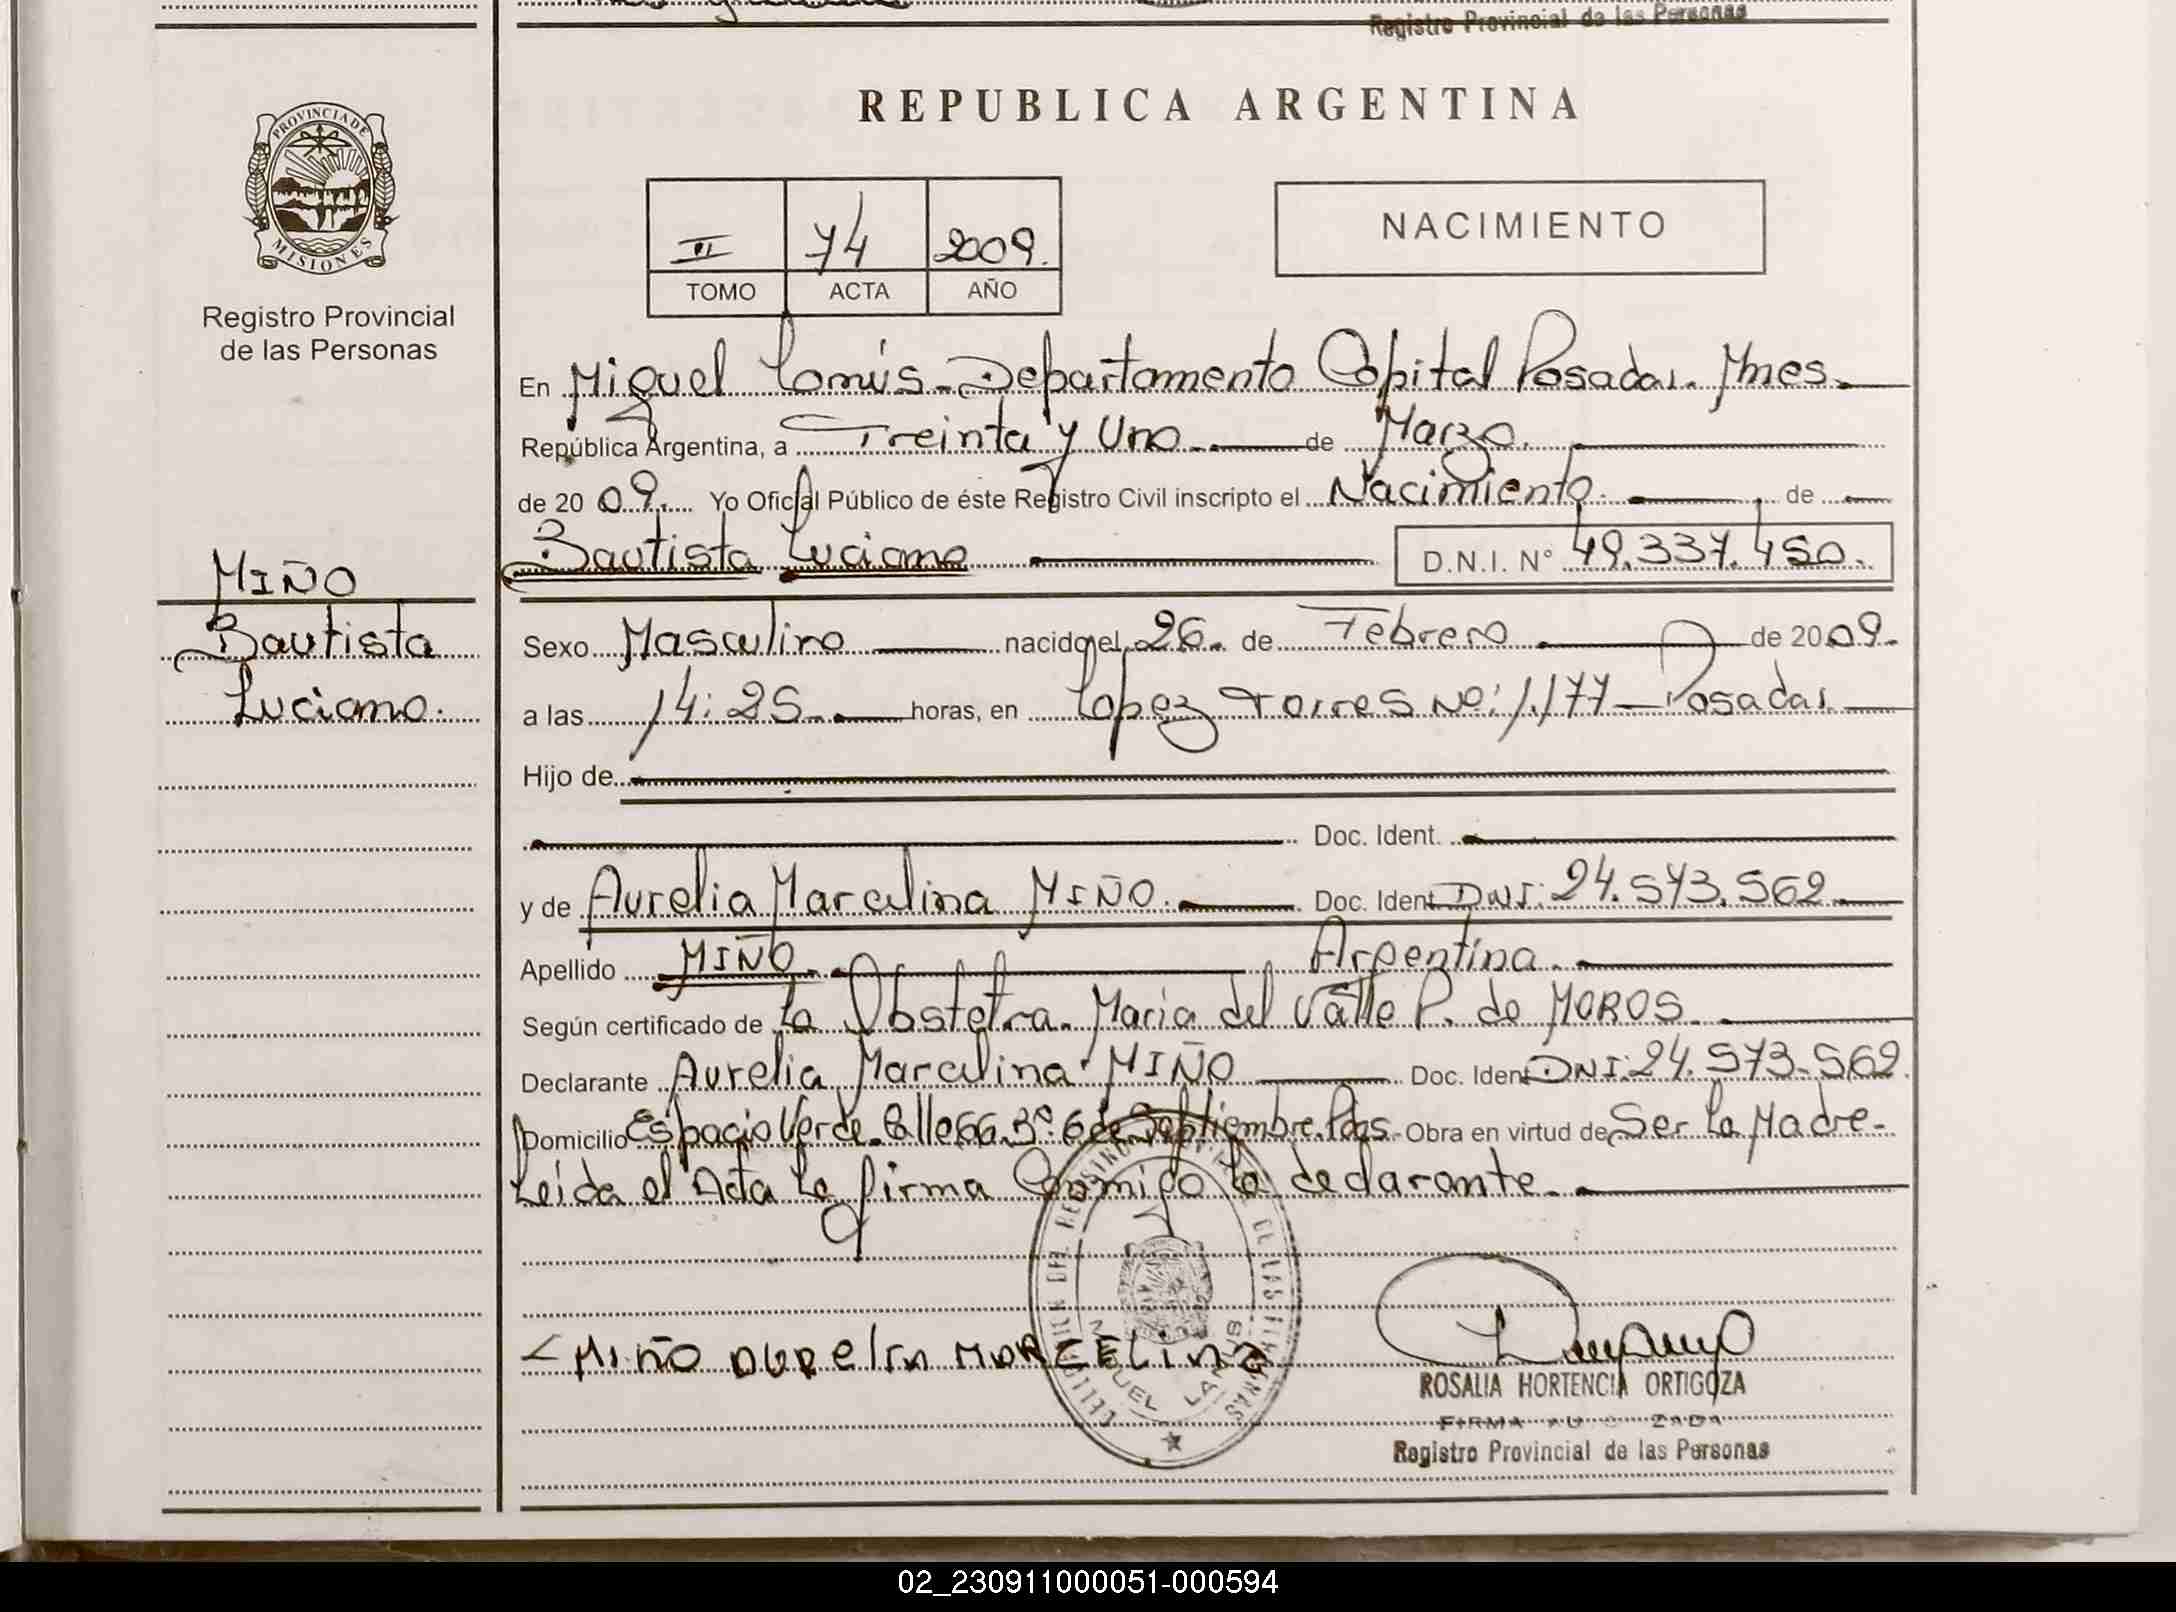 Registro Provincial de las Personas
PROVINCIA DE
MISIONES
Registro Provincial
de las Personas
REPUBLICA ARGENTINA
II 74 2009.
TOMO ACTA AÑO
NACIMIENTO
En Miguel Lanús - Departamento Capital Posadas. Mnes.
República Argentina, a Treinta y Uno de Marzo.
de 20 09. Yo Oficial Público de éste Registro Civil inscripto el Nacimiento. de
Bautista Luciano D.N.I. N° 49.337.450.
MIÑO
Bautista
Luciano.
Sexo Masculino nacido el 26. de Febrero de 20 09.
a las 14:25 horas, en Lopez Torres Nº: 1.177 - Posadas
Hijo de
Doc. Ident.
y de Aurelia Marcelina MIÑO. Doc. Ident DNI: 24.573.562
Apellido MIÑO. Argentina.
Según certificado de La Obstetra. Maria del Valle P. de MOROS.
Declarante Aurelia Marcelina MIÑO Doc. Ident DNI: 24.573.562.
Domicilio Espacio Verde. Calle 66. 6 de Septiembre. Pdas. Obra en virtud de Ser la Madre-
Leída el Acta La firma Conmigo la declarante.
MIÑO AUReliA MARCELINA
MIGUEL LANUS
ROSALIA HORTENCIA ORTIGOZA
FIRMA AU ZADA
Registro Provincial de las Personas
02_230911000051-000594